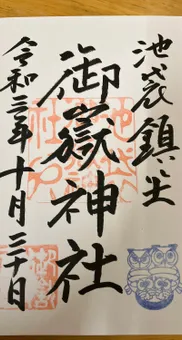 池袋鎮座
御嶽神社
令和三年十月三十日